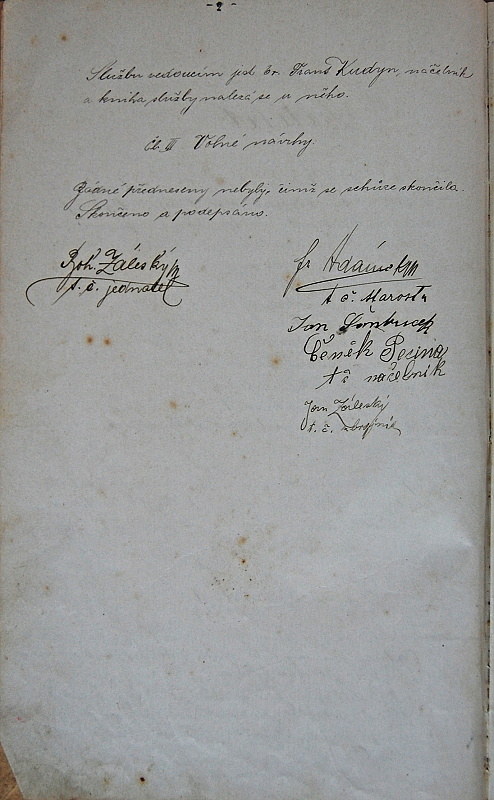 - 2 -
Službu vedoucím jest br. Frant Kudyn, náčelník
a kniha služby nalezá se u něho.
Čl. III Volné návrhy.
Žádné předneseny nebyly, čímž se schůze skončila.
Skončeno a podepsáno.
Boh. Záleský
t. č. jednatel
fr Adámek
t č. starosta
Jan
Čeněk Pecina
t č náčelník
Jan Záleský
t. č. zbrojník